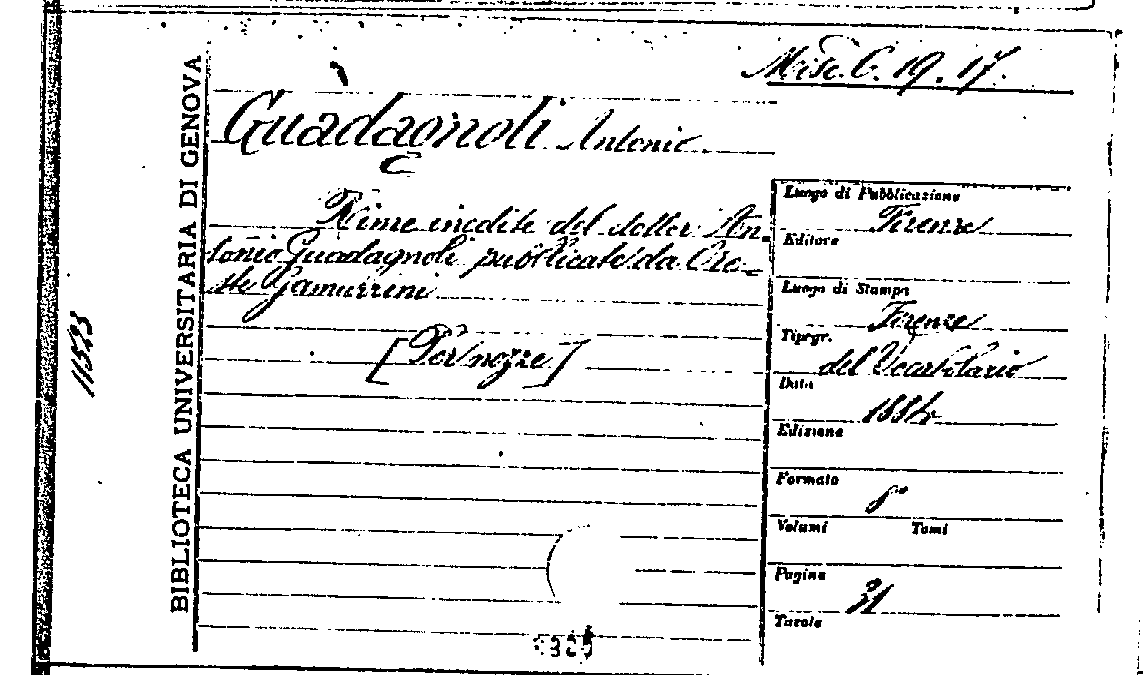 Misc. C. 19. 17.
Guadagnoli Antonio.
Rime inedite del dottor An-
tonio Guadagnoli pubblicate da Ore-
ste Gamurrini
[Per nozze]
BIBLIOTECA UNIVERSITARIA DI GENOVA
11523
Luogo di Pubblicazione
Firenze
Editore
Luogo di Stampa
Firenze
Tipogr.
del Vocabolario
Data
1884
Edizione
Formato
8°
Volumi Tomi
Pagine
31
Tavole